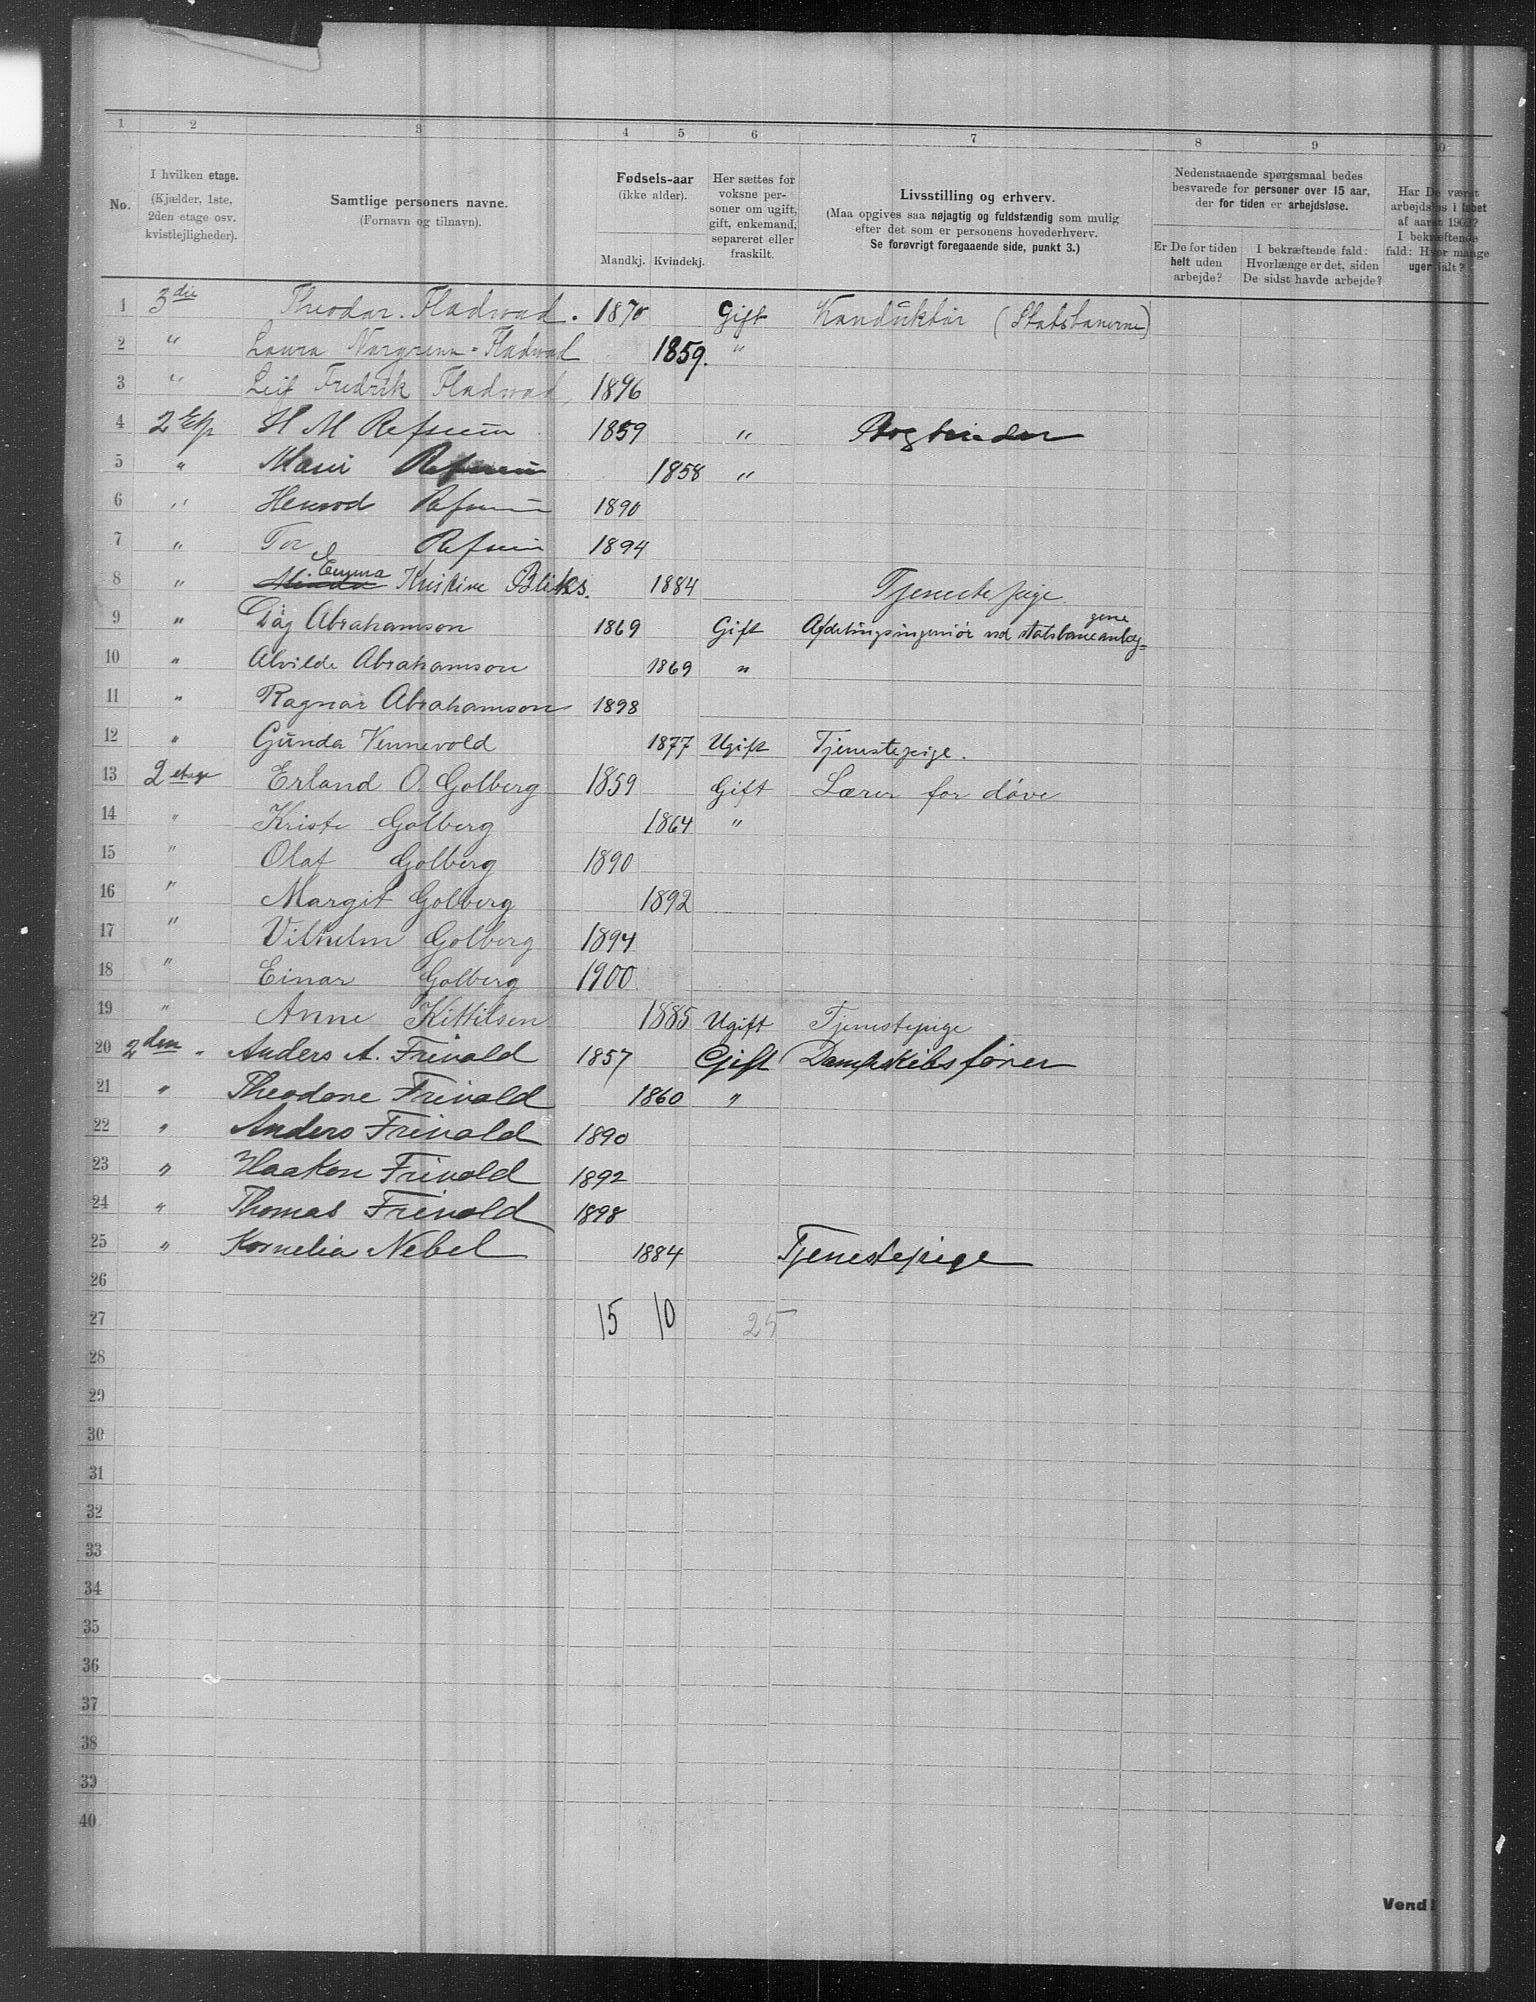 1 2 3 4 5 6 7 8 9 10
No. I hvilken etage. (Kjælder, 1ste, 2den etage osv. kvistlejligheder). Samtlige personers navne. (Fornavn og tilnavn). Fødsels-aar (ikke alder). Mandkj. Kvindekj. Her sættes for voksne personer om ugift, gift, enkemand, separeret eller fraskilt. Livsstilling og erhverv. (Maa opgives saa nøjagtig og fuldstændig som mulig efter det som er personens hovederhverv. Se forøvrigt foregaaende side, punkt 3.) Nedenstaaende spørgsmaal bedes besvarede for personer over 15 aar, der for tiden er arbejdsløse. Er De for tiden helt uden arbejde? I bekræftende fald: Hvorlænge er det, siden De sidst havde arbejde? Har De været arbejdsløs i løbet af aaret 1902? I bekræftende fald: Hvor mange uger ialt?
1 3die Theodor. Fladvad. 1870 Gift Konduktør (Statsbanerne)
2 " Laura Norgrenn-Fladvad 1859. "
3 " Leif Fredrik Fladvad, 1896
4 2 Etg H M Refsum 1859 " Bogbinder
5 " Marie Refsum 1858 "
6 " Henrod Refsum 1890
7 " Tor Refsum 1894
8 " Emma Kristine Bliks. 1884 Tjenestepige
9 " Dag Abrahamson 1869 Gift Afdelingsingeniør ved statsbaneanlæg=gene
10 " Alvilde Abrahamson 1869 "
11 " Ragnar Abrahamson 1898
12 " Gunda Vennevold 1877 Ugift Tjenestepige.
13 2 etage Erland O. Golberg 1859 Gift Lærer for døve
14 " Kriste Golberg 1864 "
15 " Olaf Golberg 1890
16 " Margit Golberg 1892
17 " Vilhelm Golberg 1894
18 " Einar Golberg 1900.
19 " Anne Kittilsen 1885 Ugift Tjenestepige
20 2den. Anders A. Frivold 1857 Gift Dampskibsfører
21 " Theodore Frivold 1860 "
22 " Anders Frivold 1890
23 " Haakon Frivold 1892
24 " Thomas Frivold 1898
25 " Kornelia Nebel 1884 Tjenestepige
26
27 15 10 25
28
29
30
31
32
33
34
35
36
37
38
39
40
Vend!